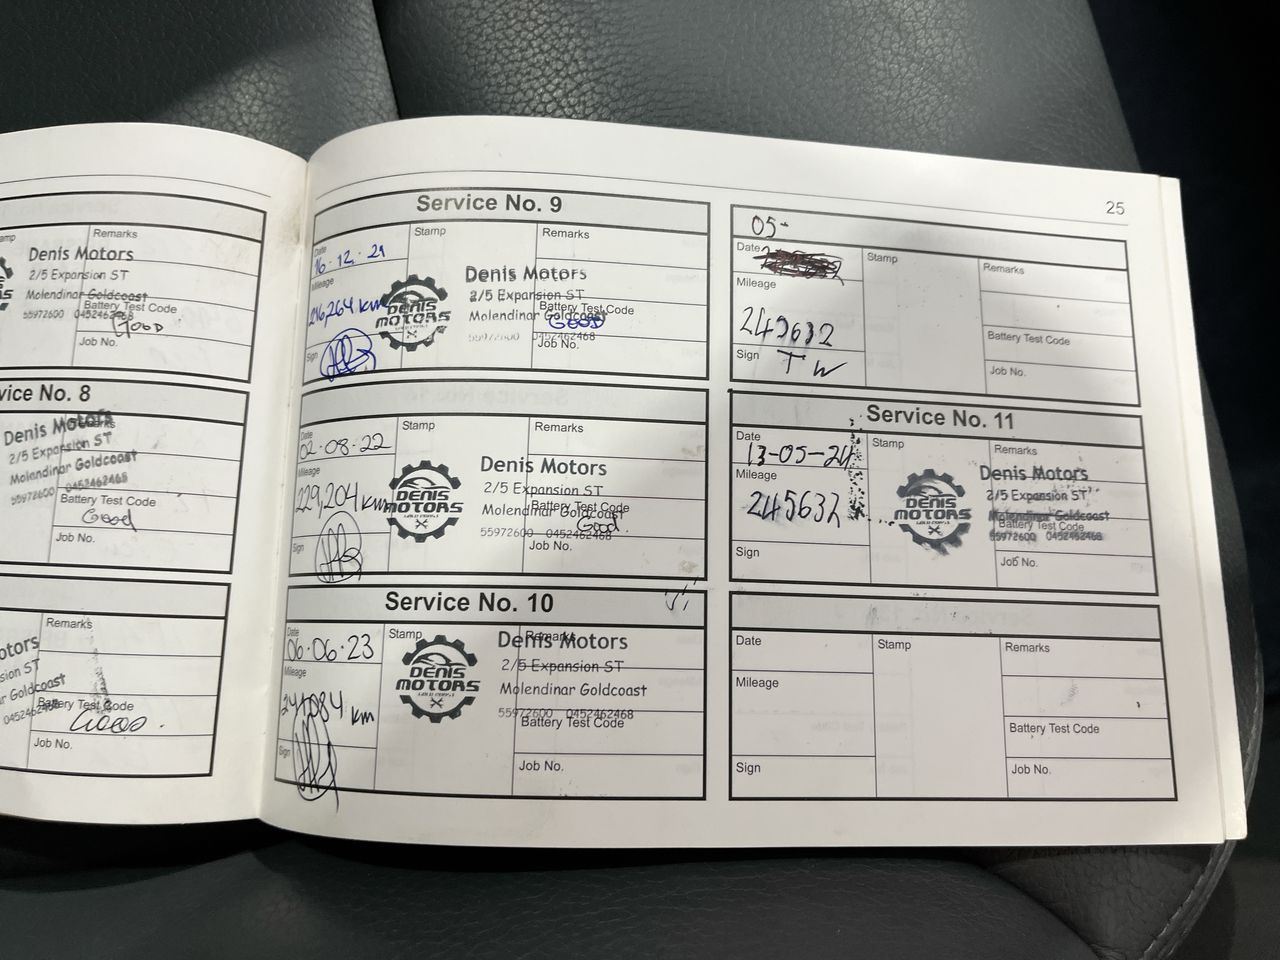 amp
Remarks
Denis Motors
2/5 Expansion ST
Molendinar Goldcoast
Battery Test Code
55972600 0452462468
GOOD
Job No.
vice No. 8
Denis Motors
Remarks
2/5 Expansion ST
Molendinar Goldcoast
55972600 0452462468
Battery Test Code
Good
Job No.
Remarks
otors
sion ST
ar Goldcoast
0452462468
Battery Test Code
Good
Job No.
25
Service No. 9
Date
16.12.21
Stamp
Remarks
Mileage
216,264 km
DENIS
MOTORS
GOLD COAST
Denis Motors
2/5 Expansion ST
Battery Test Code
Molendinar Goldcoast
GOOD
55972600 0452462468
Sign
Job No.
Date
02-08-22
Stamp
Remarks
Mileage
229,204 km
DENIS
MOTORS
GOLD COAST
Denis Motors
2/5 Expansion ST
Battery Test Code
Molendinar Goldcoast
Good
55972600 0452462468
Sign
Job No.
Service No. 10
Date
06.06.23
Stamp
Remarks
Mileage
241,084 km
DENIS
MOTORS
GOLD COAST
Denis Motors
2/5 Expansion ST
Molendinar Goldcoast
55972600 0452462468
Battery Test Code
Sign
Job No.
05-
Date
Stamp
Remarks
Mileage
245632
Battery Test Code
Sign
TW
Job No.
Service No. 11
Date
13-05-24
Stamp
Remarks
Mileage
245632
DENIS
MOTORS
GOLD COAST
Denis Motors
2/5 Expansion ST
Molendinar Goldcoast
Battery Test Code
55972600 0452462468
Sign
Job No.
Date
Stamp
Remarks
Mileage
Battery Test Code
Sign
Job No.